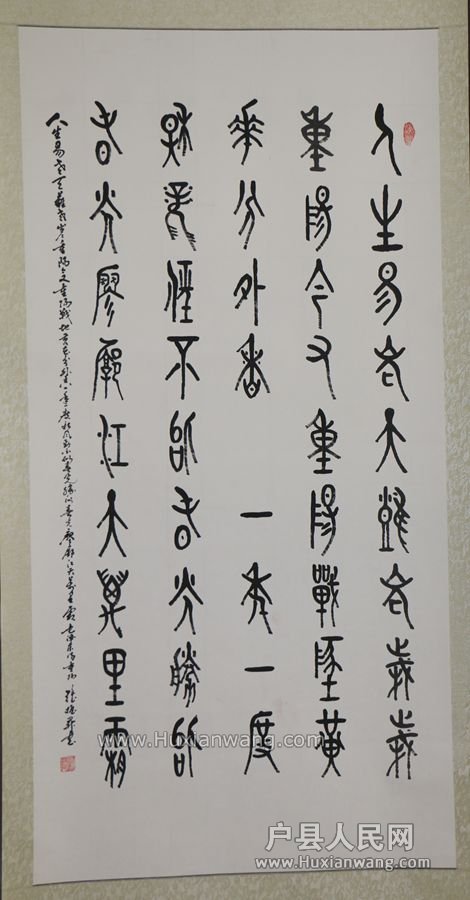 人生易老天難老歲歲
重陽今又重陽戰地黃
華分外香 一年一度
秋風勁不似春光勝似
春光廖廓江天萬里霜
人生易老天難老岁岁重陽今又重陽戰地黄花分外香一年一度秋风劲不似春光勝似春光寥廓江天萬里霜 毛泽东詩重陽
www.Huxianwang.com
户县人民网
www.Huxianwang.com